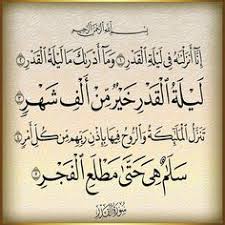 بِسْمِ اللَّهِ الرَّحْمَٰنِ الرَّحِيمِ
إِنَّا أَنزَلْنَاهُ فِي لَيْلَةِ الْقَدْرِ ۝١ وَمَا أَدْرَاكَ مَا لَيْلَةُ الْقَدْرِ ۝٢
لَيْلَةُ الْقَدْرِ خَيْرٌ مِّنْ أَلْفِ شَهْرٍ ۝٣
تَنَزَّلُ الْمَلَائِكَةُ وَالرُّوحُ فِيهَا بِإِذْنِ رَبِّهِم مِّن كُلِّ أَمْرٍ ۝٤
سَلَامٌ هِيَ حَتَّىٰ مَطْلَعِ الْفَجْرِ ۝٥
سُورَةُ الْقَدْرِ